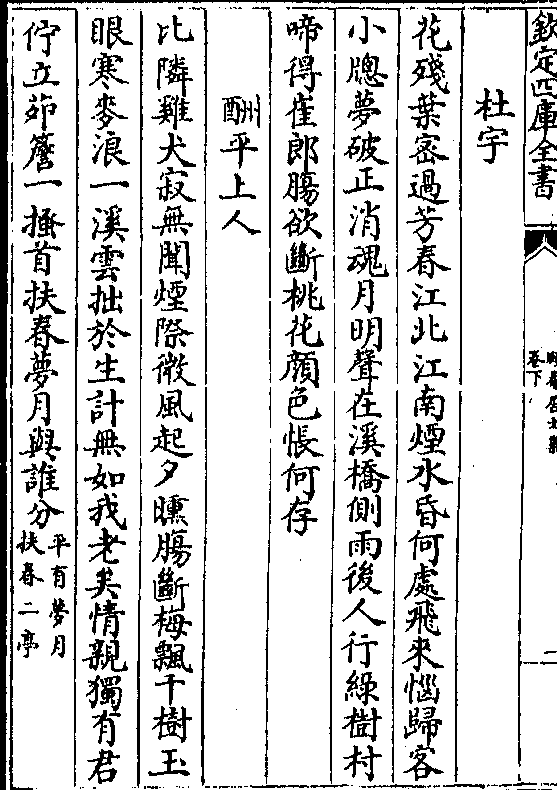 欽定四庫全書
卷下
二
杜宇
花殘葉宻過芳春江北江南煙水昏何處飛來惱歸客
小牕夢破正消魂月明聲在溪橋側雨後人行綠樹村
啼得崔郎腸欲斷桃花顔色悵何存
酬平上人
比隣雞犬寂無聞煙際微風起夕曛腸斷梅飄千樹玉
眼寒麥浪一溪雲拙於生計無如我老矣情親獨有君
佇立茆簷一搔首扶春夢月與誰分平有夢月
扶春二亭